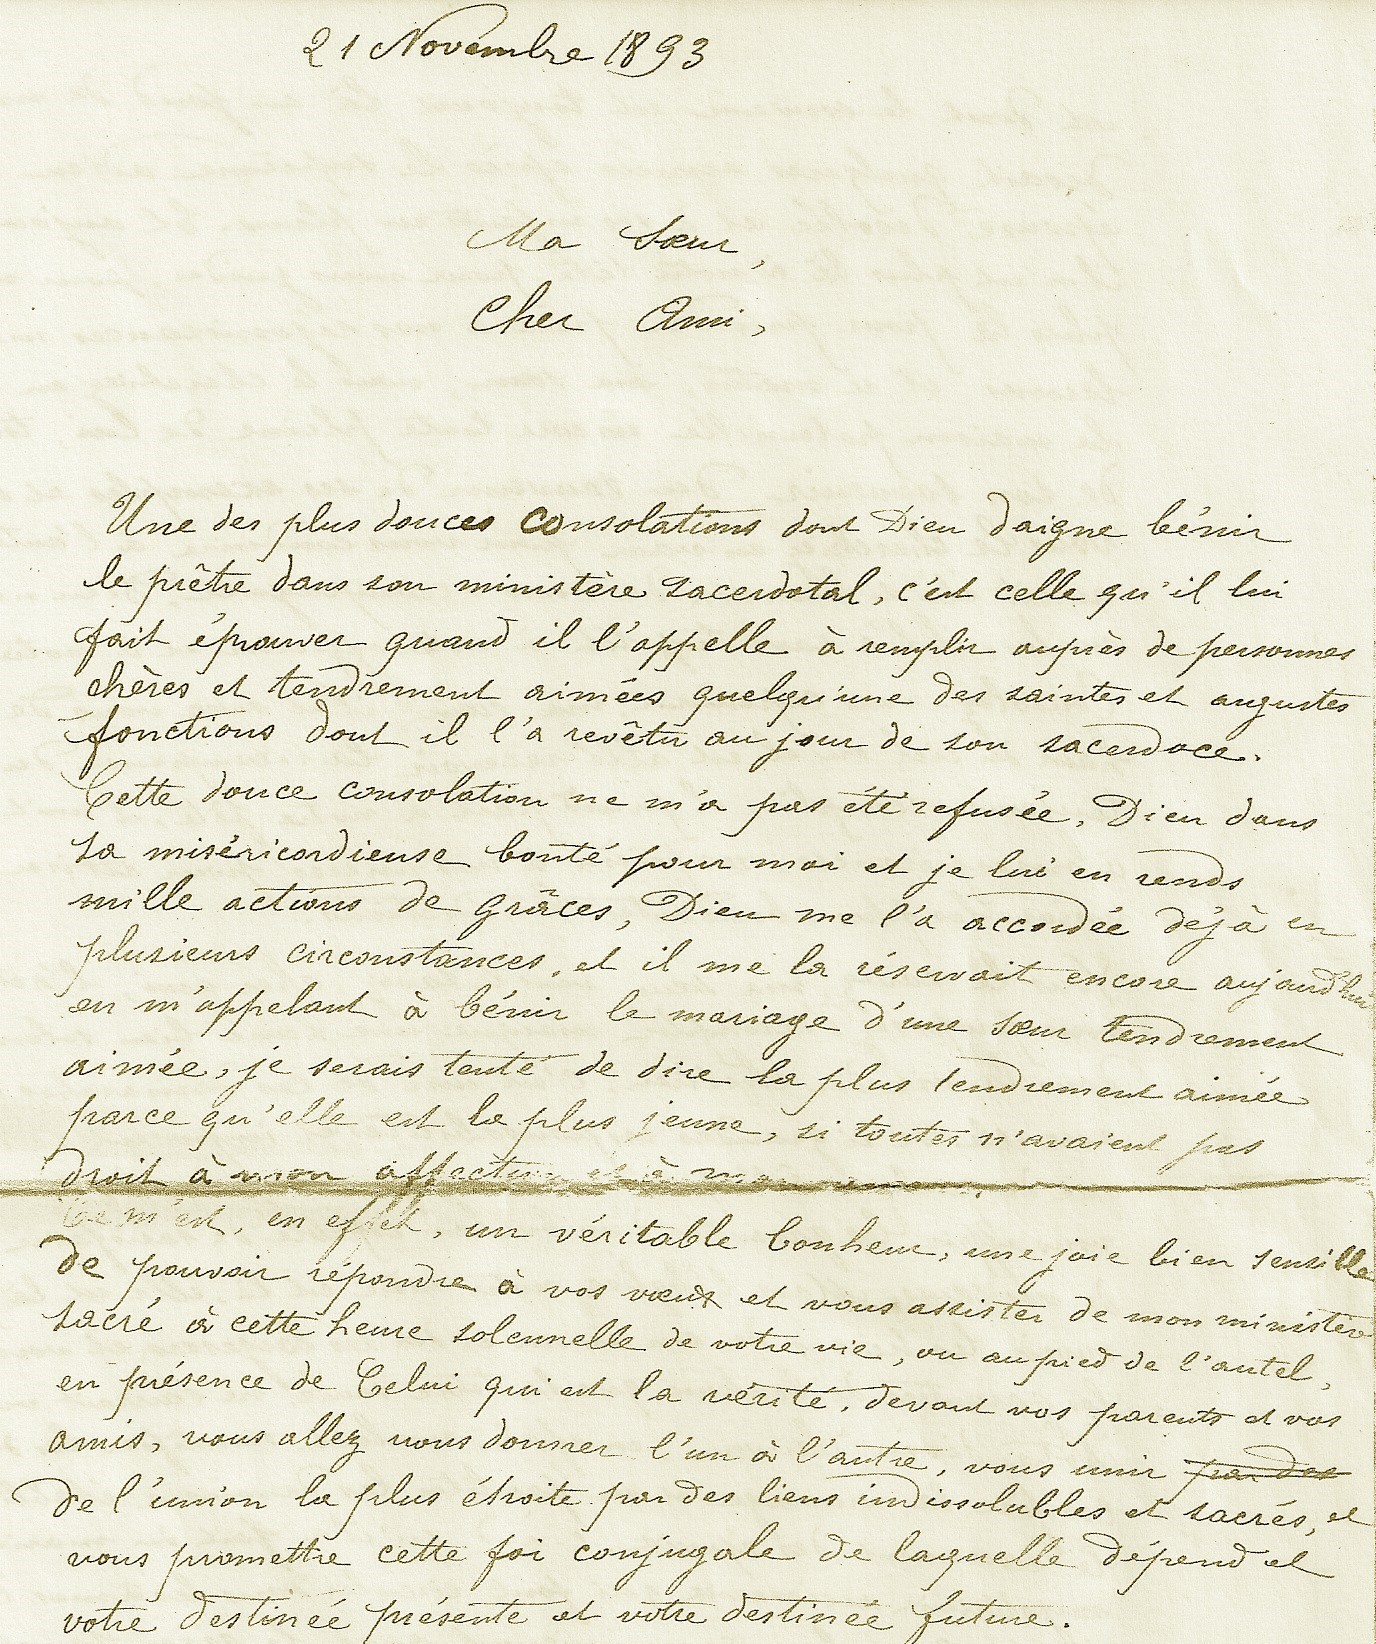 21 Novembre 1893
Ma Sœur,
Cher Ami,
Une des plus douces consolations dont Dieu daigne bénir
le prêtre dans son ministère sacerdotal, c'est celle qu'il lui
fait éprouver quand il l'appelle à remplir auprès de personnes
chères et tendrement aimées quelqu'une des saintes et augustes
fonctions dont il l'a revêtu au jour de son sacerdoce.
Cette douce consolation ne m'a pas été refusée, Dieu dans
sa miséricordieuse bonté pour moi et je lui en rends
mille actions de grâces, Dieu me l'a accordée déjà en
plusieurs circonstances, et il me la réservait encore aujourd'hui
en m'appelant à bénir le mariage d'une sœur tendrement
aimée, je serais tenté de dire la plus tendrement aimée
parce qu'elle est la plus jeune, si toutes n'avaient pas
droit à mon affection et à
Ce m'est, en effet, un véritable bonheur, une joie bien sensible
de pouvoir répondre à vos vœux et vous assister de mon ministère
sacré à cette heure solennelle de votre vie, ou au pied de l'autel,
en présence de Celui qui est la vérité, devant vos parents et vos
amis, vous allez vous donner l'un à l'autre, vous unir par des
de l'union la plus étroite par des liens indissolubles et sacrés, et
vous promettre cette foi conjugale de laquelle dépend et
votre destinée présente et votre destinée future.